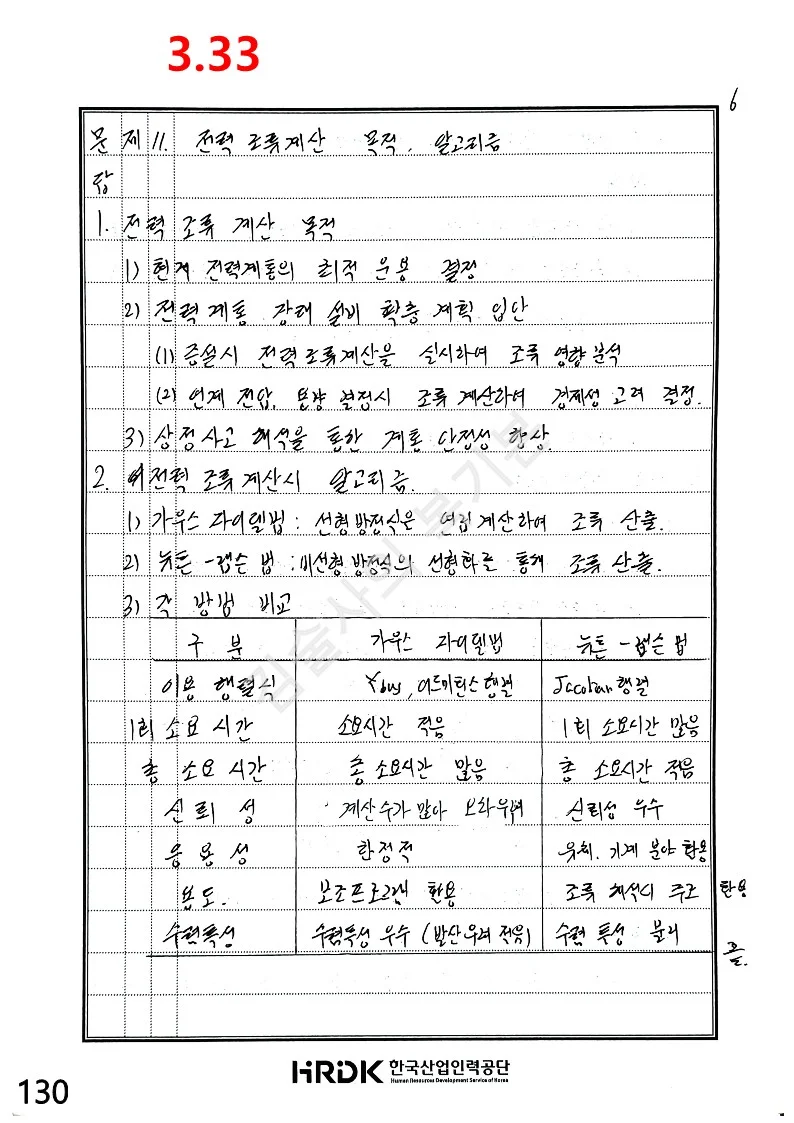 3.33
6
문 제 11. 전력 조류계산 목적, 알고리즘
답
1. 전력 조류 계산 목적
1) 현재 전력계통의 최적 운용 결정
2) 전력계통 장래 설비 확충 계획 입안
(1) 증설시 전력 조류계산을 실시하여 조류 영향 분석
(2) 연계 전압, 용량 결정시 조류 계산하여 경제성 고려 결정.
3) 상정사고 해석을 통한 계통 안정성 향상.
2. 전력 조류 계산시 알고리즘.
1) 가우스 자이델법 : 선형방정식은 연립계산하여 조류 산출.
2) 뉴튼-랩슨 법 : 비선형 방정식의 선형화를 통해 조류 산출.
3) 각 방법 비교
구 분 가우스 자이델법 뉴튼-랩슨 법
이용 행렬식 Ybus, 어드미턴스 행렬 Jacobian 행렬
1회 소요 시간 소요시간 적음 1회 소요시간 많음
총 소요 시간 총 소요시간 많음 총 소요시간 적음
신뢰 성 계산수가 많아 오차우려 신뢰성 우수
응용성 한정적 우최. 기계 분야 활용
용도. 보조프로그램 활용 조류 해석시 주로 활용
수렴특성 수렴특성 우수 (발산우려 적음) 수렴 특성 불리
끝.
기술사의 복기본
HRDK 한국산업인력공단
Human Resources Development Service of Korea
130